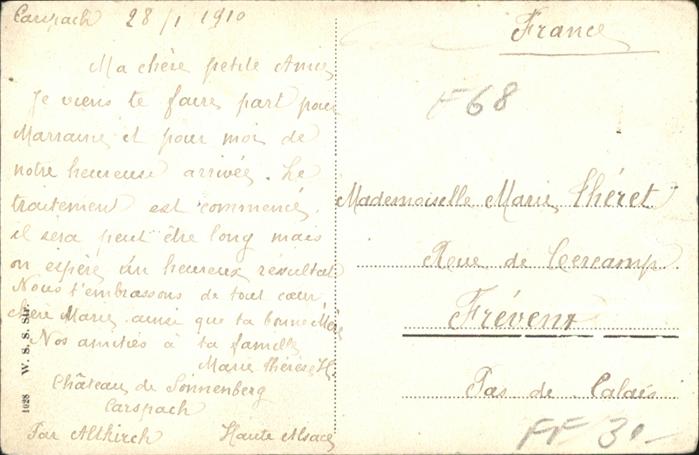 Carspach 28/1 1910
Ma chère petite Amie
Je viens te faire part pour
Marraine et pour moi de
notre heureuse arrivée. Le
traitement est commencé,
il sera peut être long mais
on espère un heureux résultat
Nous t'embrassons de tout cœur
chère Marie, ainsi que ta bonne Mère
Nos amitiés à ta famille
Marie Thérèse H
Château de Sonnenberg
Carspach
Par Altkirch Haute Alsace
1028 W. S. S. Str.
France
F 68
Mademoiselle Marie Théret
Rue de Cercamp
Frévent
Pas de Calais
FF 30-